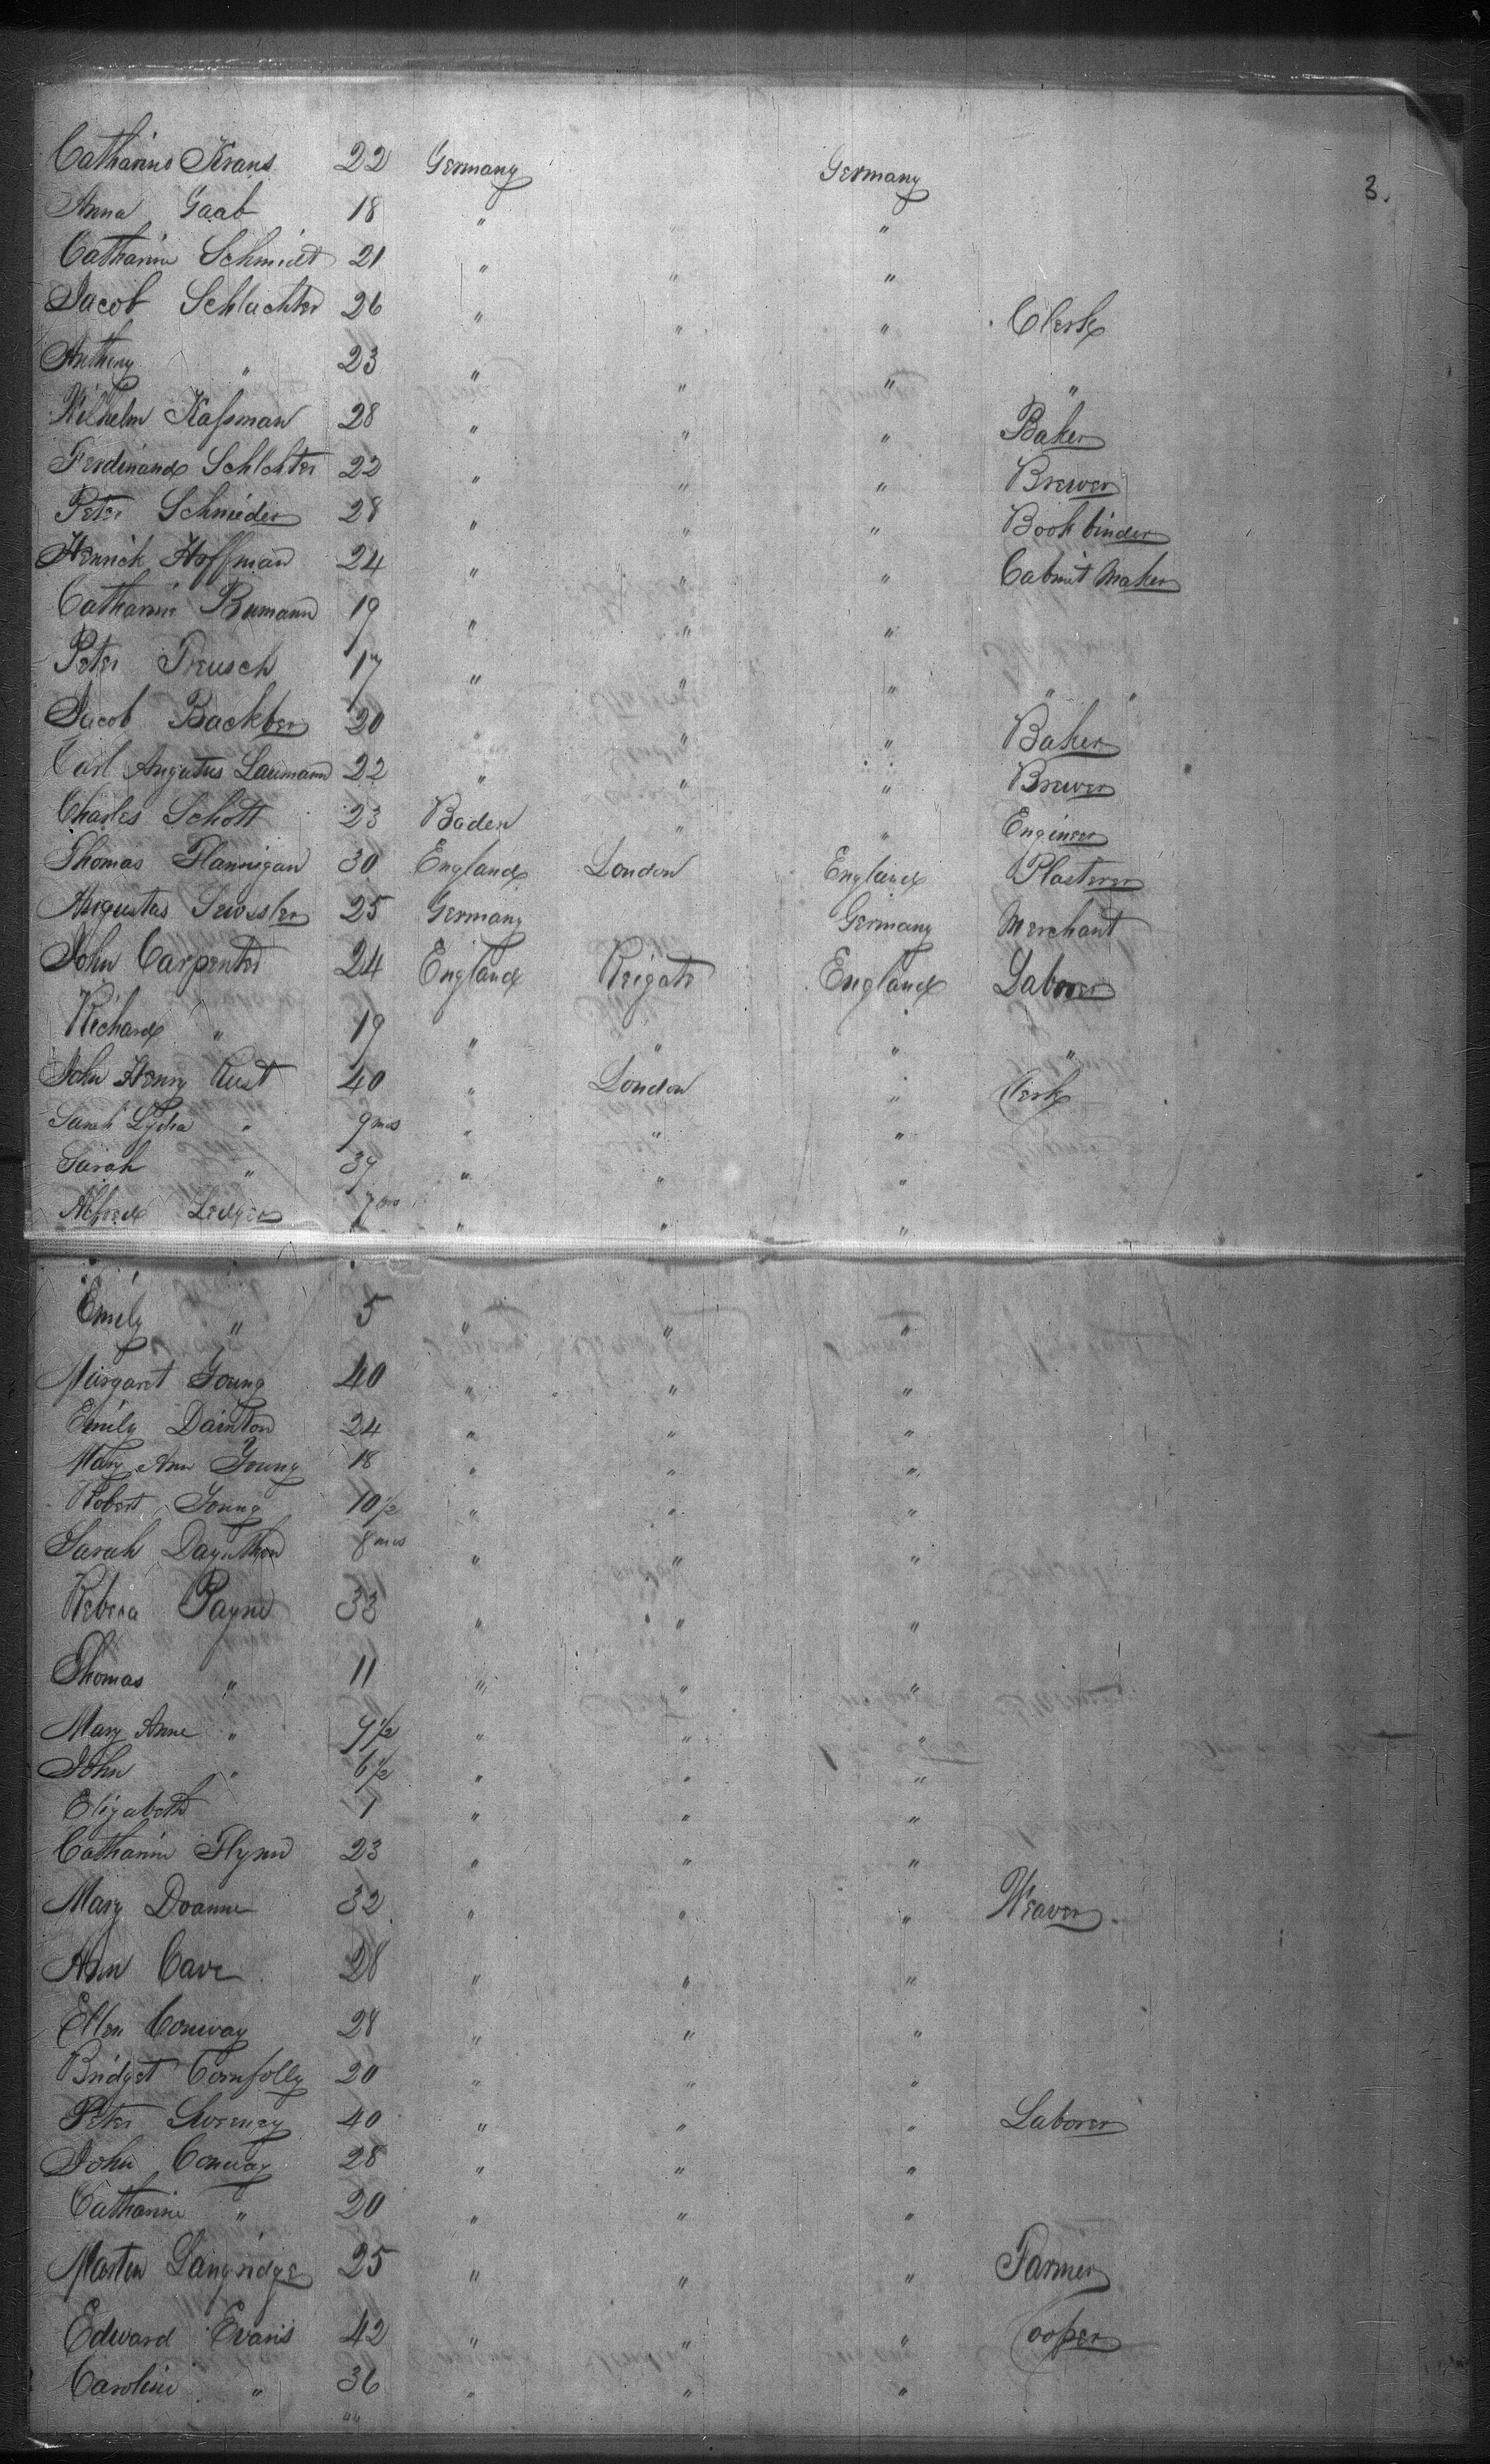 3.
Catharine Krans 22 Germany Germany
Anna Gaab 18 " " "
Catharine Schmidt 21 " " "
Jacob Schlachter 26 " " " Clerk
Anthony " 23 " " " "
Wilhelm Kassman 28 " " " Baker
Ferdinand Schlchter 22 " " " Brewer
Peter Schnieder 28 " " " Book binder
Henrich Hoffman 24 " " " Cabinet Maker
Catharine Bumann 19 " " "
Peter Preusch 17 " " " " "
Jacob Backber 20 " " " Baker
Carl Angutus Laumann 22 " " " Brewer
Charles Schott 23 Baden " " Engineer
Thomas Flannigan 30 England London England Plasterer
Augustas 25 Germany Germany Merchant
John Carpenter 24 England Reigate England Laborer
Richard " 19 " " " "
John Henry Rust 40 " London " Clerk
Sarah Lydia " 9 mos " " "
Sarah " 39 " " "
Alfred Ledger 7 " " "
Emily " 5 " " "
Margaret Young 40 " " "
Emily Dainton 24 " " "
Mary Ann Young 18 " " "
Robert Young 10 1/2 " " "
Sarah Daynthon 8 mos " " "
Rebeca Payne 33 " " "
Thomas " 11 " " "
Mary Anne " 9 1/2 " " "
John " 6 1/2 " " "
Elizabeth 1 " " "
Catharine Flynn 23 " " "
Mary Doanne 32 " " " Weaver
Ann Cave 28 " " "
Ellen Conway 28 " " "
Bridget Cornfolly 20 " " "
Peter Sweeney 40 " " " Laborer
John Conway 28 " " "
Catharine " 20 " " "
Martin Langridge 25 " " " Farmer
Edward Evans 42 " " " Cooper
Caroline " 36 " " "
44